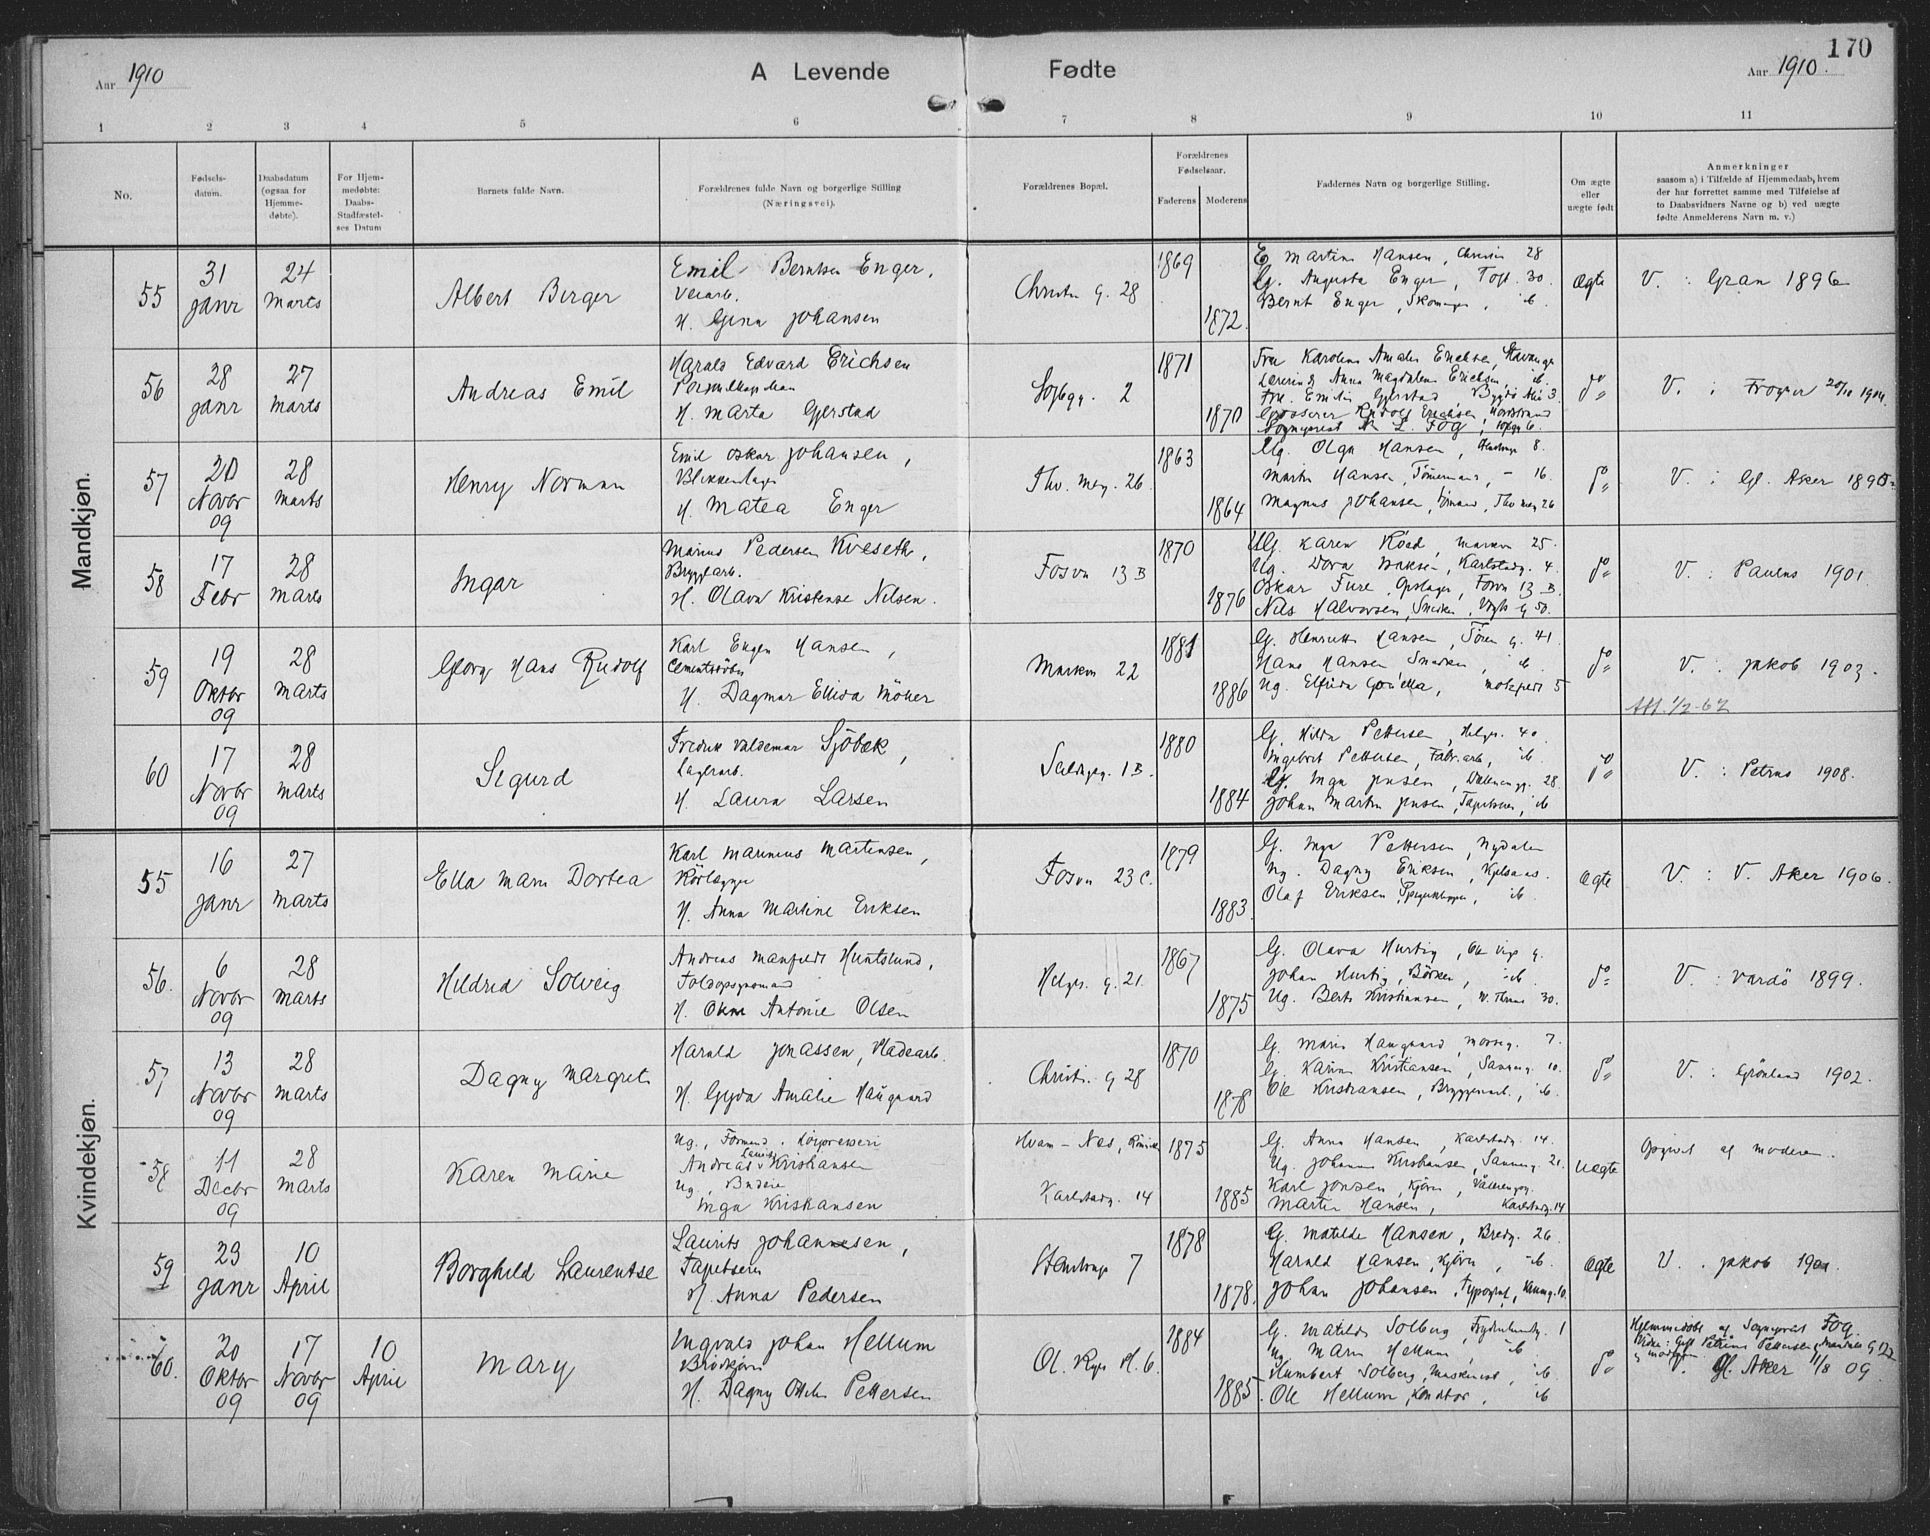 170
Aar 1910
A Levende Fødte
Aar 1910.
1 2 3 4 5 6 7 8 9 10 11
No.
Fødsels-
datum.
Daabsdatum
(ogsaa for
Hjemme-
døbte).
For Hjem-
medøbte:
Daabs-
Stadfæstel-
ses Datum
Barnets fulde Navn.
Forældrenes fulde Navn og borgerlige Stilling
(Næringsvei).
Forældrenes Bopæl.
Forældrenes
Fødselsaar.
Faderens Moderens
Faddernes Navn og borgerlige Stilling.
Om ægte
eller
uægte født
Anmerkninger
saasom a) i Tilfælde af Hjemmedaab, hvem
der har forrettet samme med Tilføielse af
to Daabsvidners Navne og b) ved uægte
fødte Anmelderens Navn m. v.)
Mandkjøn.
55
31
Janr
24
Marts
Albert Birger
Emil Berntsen Enger,
Veiarb.
H. Gina Johansen
Christn G. 28
1869
1872.
Martin Hansen, Christin 28
G. Augusta Enger, Toft. 30.
Bernt Enger, Skomager, ib.
Ægte
V. : Gran 1896
56
28
Janr
27
Marts
Andreas Emil
Harald Edvard Erichsen
H. Marta Gjerstad
2
1871
1870
Fru Karoline Amalie Erichsen, Stavanger
Lærerinde Anna Magdalena Erichsen, ib.
Frk. Emilie Gjerstad, Bygdø Alle 3.
Grosserer Rudolf Erichsen Nordstrand
Sogneprest L. Fog,
do
V. : Frogner 20/10 1904.
57
20
Novbr
09
28
Marts
Henry Norman
Emil Oskar Johansen,
Blikkenslager
H. Matea Enger
Thv. Mey. 26
1863
1864
Ug. Olga Hansen, 8.
Martin Hansen, Tømmermand, - 16.
Magnus Johansen, Thv Mey 26
do
V. : Gl. Aker 1895
58
17
Febr
28
Marts
Ingar
Marius Pedersen Kveseth,
Bryggearb.
H. Olava Kristense Nilsen.
Fosvn 13 B
1870
1876
Ug. Karen Röed, Markvn 25.
Ug. Dora Isaksen, Karlstadg. 4.
Oskar Fure, Opslager, Fosvn 13 B.
Nils Halvorsen, Snedker, Vogts G 50.
do
V. : Paulus 1901.
59
19
Oktbr
09
28
Marts
Georg Hans Rudolf
Karl Eugen Hansen,
Cementstøber
H. Dagmar Ellida Möller
Markvn 22
1881
1886
G. Henriette Hansen, Tören G. 41.
Hans Hansen Snedker, ib.
Ug. Elfrida 5
do
V. : Jakob 1903.
Att. 1/2-62
60
17
Novbr
09
28
Marts
Sigurd
Fredrik Valdemar Sjöbæk,
Lagerarb.
H. Laura Larsen
1 B.
1880
1884
G. Hilda Pettersen, Helgs. 40.
Ingebret Pettersen, Fabr.arb., ib.
G. Inga Jensen, 28.
Johan Martin Jensen, Tapetserer, ib
do
V. : Petrus 1908.
Kvindekjøn.
55
16
Janr
27
Marts
Ella Marie Dortea
Karl Marinius Martinsen,
Rörlægger
H. Anna Martine Eriksen
Fosvn 23 C.
1879
1883.
G. Inga Pettersen, Nydalen
Ug. Dagny Eriksen, Kjelsaas.
Olaf Eriksen, ib.
Ægte
V. : V. Aker 1906.
56.
6
Novbr
09
28
Marts
Hildrid Solveig
Andreas Manfredt Huntslund,
Toldopsynsmand
H. Antonie Olsen
Helges. G. 21.
1867
1875
G. Olava Hurtig, Ole Vigs G.
Johan Hurtig, ib.
Ug. Berta Kristiansen, W. Thrane 30.
do
V. : Vardö 1899.
57
13
Novbr
09
28
Marts
Dagny Margrete
Harald Jonassen, Pladearb.
H. Gyda Amalie Haugaard
Christi. G 28
1870
1878
G. Marie Haugaard, 7.
G. Karine Kristiansen, Sannerg. 10.
Ole Kristiansen, Bryggeriarb., ib.
do
V. : Grönland 1902.
58
11
Decbr
09
28
Marts
Karen Marie
Ug., Formand
Andreas Lauritz Kristiansen
Ug., Budeie
Inga Kristiansen
Hvam - Nes, Romerike
Karlstadg. 14
1875
1885
G. Anna Hansen, Karlstadg. 14.
Ug. Johanna Kristiansen, Sannerg. 21.
Karl Jonsen, Kjörer, Vålerenggt.
Martin Hansen, Karlstadg. 14
Uægte
Opgivet af moderen.
59
23
Janr
10
April
Borghild Laurentse
Laurits Johannesen,
Tapetserer
H. Anna Pedersen
7
1878
1878.
G. Matilde Hansen, Bredg. 26.
Harald Hansen, Kjörer, ib.
Johan Johansen, Typograf,
Ægte
V. : Jakob
60.
20
Oktbr
09
17
Novbr
09
10
April
Mary
Ingvald Johan Hellum
Brödkjörer
H. Dagny Otilie Pettersen
Ol. Ryes Pl. 6.
1884
1885
G. Matilde Solberg, Frydenlundg. 1
Ug. Marie Hellum, ib.
Humbert Solberg, Maskinist, ib.
Ole Hellum, Kontor, ib
do
Hjemmedöbt af Sogneprest Fog.
Vidne: Gift Petrine Pettersen,
V. Gl. Aker 11/8 09.